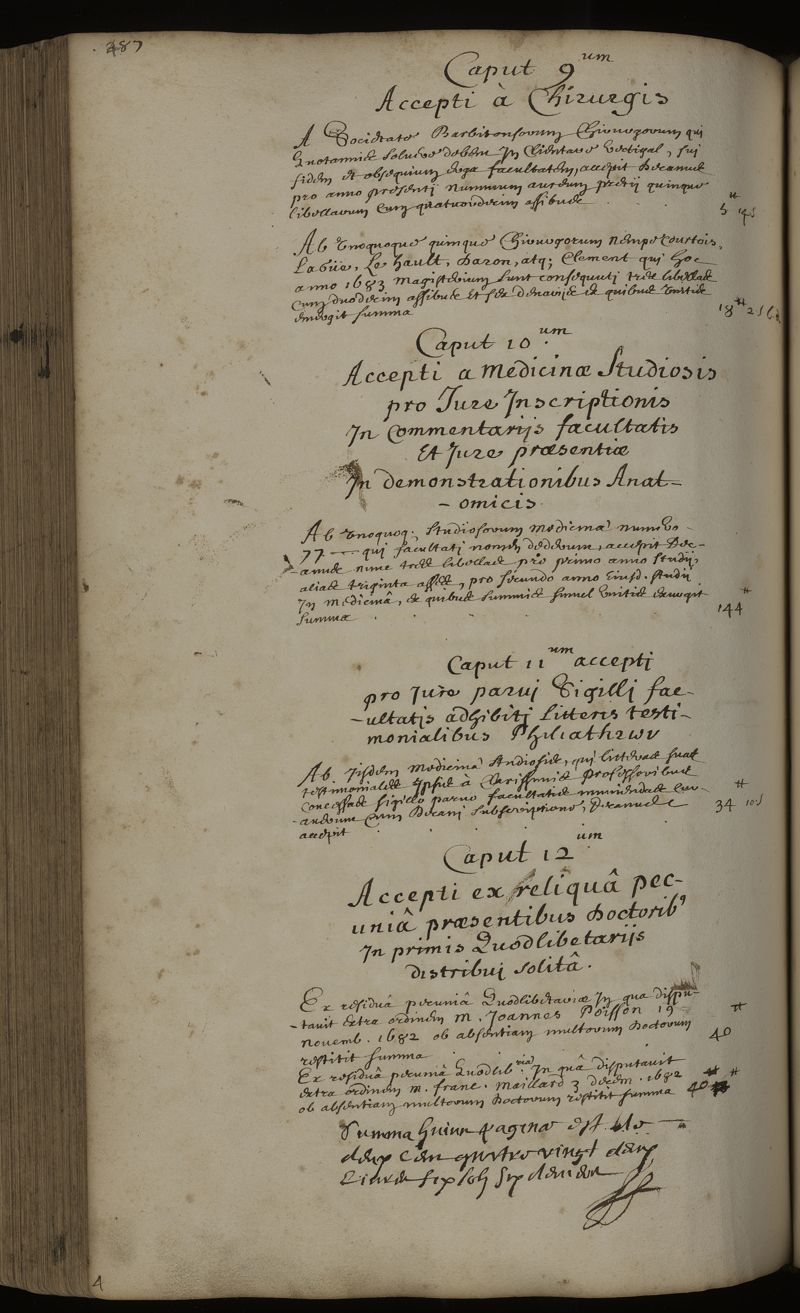 487
Caput 9um
Accepti à Chirurgis
A Societate Barbitonsorum Chirurgorum qui
Quotannis solvere debent In Clientare Vectigal, sui
fidem et obsequium erga facultatem, accepit Decanus
pro anno præsentj nummum aureum pretij quinque
libellarum cum quatuordecim assibus
5# 14s
Ab Vnoquoque quinque Chirurgorum nempe Courtois,
Labüe, Le hault, Daron, atq; Clement qui hoc
anno 1683 Magisterium sunt consequutj tres libellas
cum duodecim assibus et sex denarijs ex quibus Vnitis
emergit summa
18# 2s 6d
Caput 10um
Accepti a medicinæ Studiosis
pro Jure Inscriptionis
In Commentarijs facultatis
Et Jure præsentiæ
In demonstrationibus Anat-
-omicis.
Ab Vnoquoq; Studiosorum medicinæ numero
77 qui facultatj nomen dederunt, accepit Dec-
-anus nunc tres libellas pro primo anno studij
alias triginta asses, pro secundo anno Eiusd. studij
In medicinâ, ex quibus summis simul Vnitis emergit
summa
144#
Caput 11um accepti
pro Jure parvi Sigilli fac-
-ultatis adhibiti Litteris testi-
monialibus Philiathrων
Ab Jisdem medicinæ studiosis, qui litteras suas
testimoniales Ipsis à Clarissimis professoribus
concessas sigillo parvo facultatis muniendas cur-
-arunt cum Decani subscriptione, Decanus
accepit
34# 10s
Caput 12um
Accepti ex reliquâ pec-
uniâ præsentibus Doctorib9
In primis Quodlibetarijs
distribui solitâ.
Ex residuâ pecuniâ Quodlibetariæ In qua dispu-
-tavit extra ordinem m. Joannes Poisson 19
novemb. 1682 ob absentiam multorum Doctorum
restitit summa
40#
Ex residuâ pecuniâ Quodlibriæ In quâ disputavit
extra ordinem m. franc. maillard 3 decem. 1682
ob absentiam multorum Doctorum restitit summa
40#
Summa huius paginæ est de
deux Cen quatre vingt deux
Livres six sols six denier
4